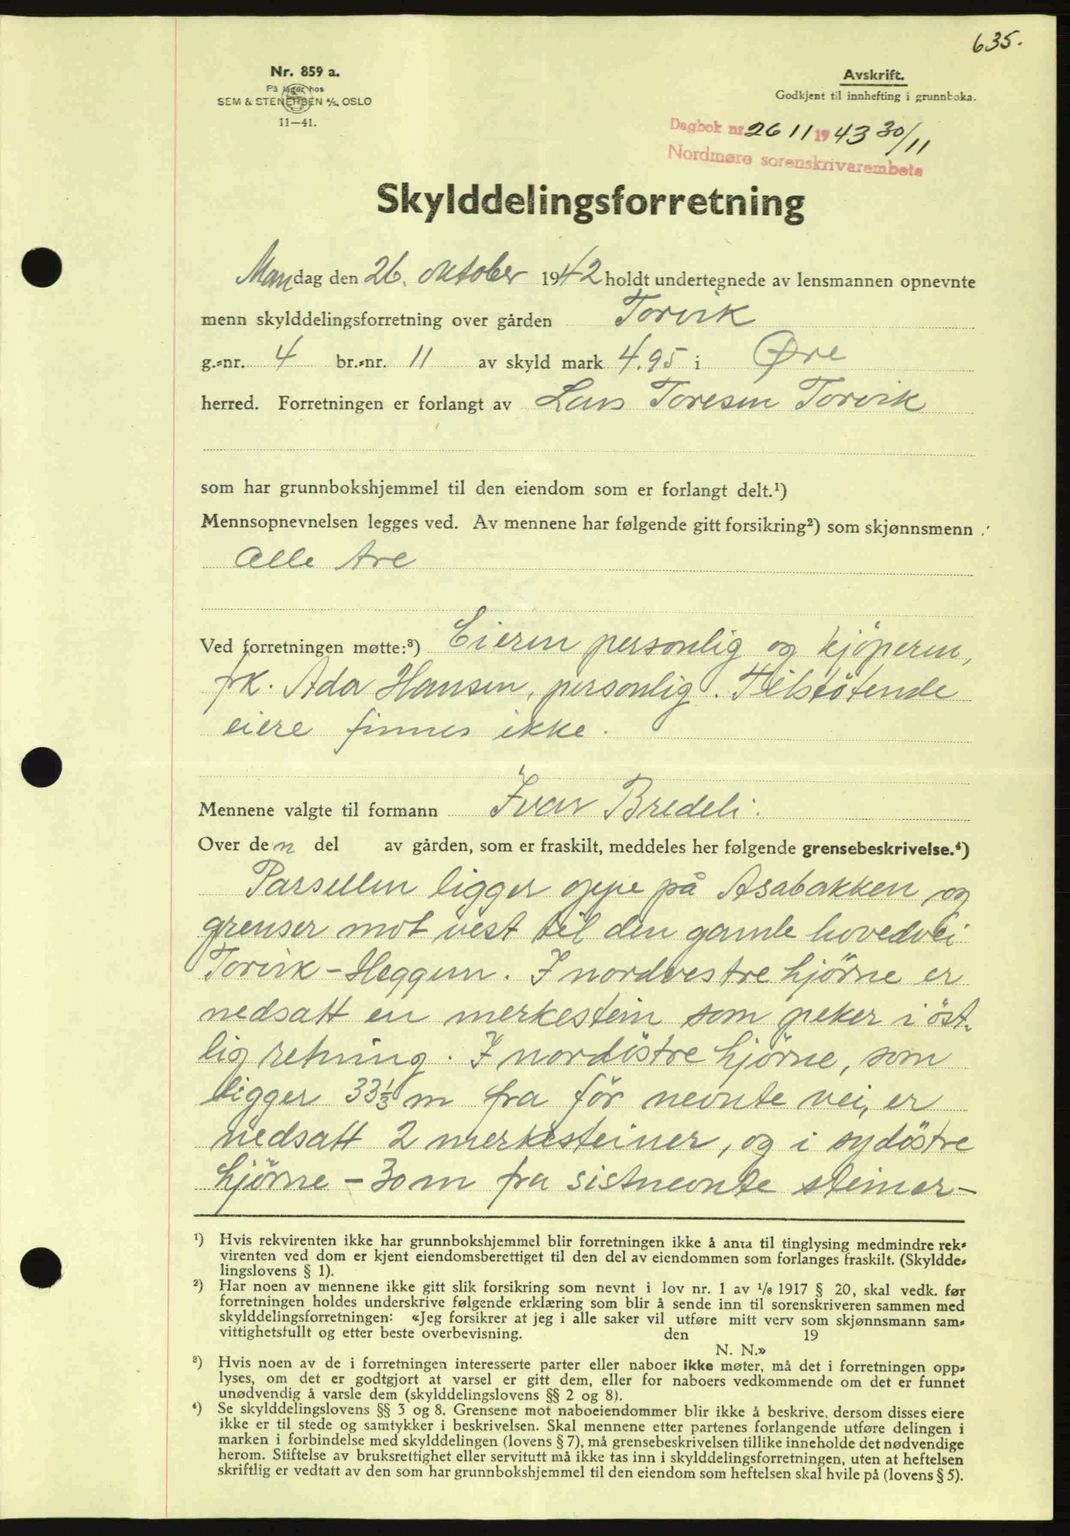 635.
Nr. 859 a.
På lager hos
SEM & STENERSEN A/S, OSLO
11—41.
Avskrift.
Godkjent til innhefting i grunnboka.
Dagbok nr. 2611 1943 30/11
Nordmøre sorenskrivarembete
Skylddelingsforretning
Mandag den 26. oktober 1942 holdt undertegnede av lensmannen opnevnte
menn skylddelingsforretning over gården Torvik
g.-nr. 4 br.-nr. 11 av skyld mark 4.95 i Øre
herred. Forretningen er forlangt av Lars Toresen Torvik
som har grunnbokshjemmel til den eiendom som er forlangt delt.¹)
Mennsopnevnelsen legges ved. Av mennene har følgende gitt forsikring²) som skjønnsmenn :
Alle tre
Ved forretningen møtte:³) Eieren personlig og kjöperen,
frk. Ada Hansen, personlig. Tilstötende
eiere finnes ikke.
Mennene valgte til formann Ivar Bredeli.
Over den del av gården, som er fraskilt, meddeles her følgende grensebeskrivelse.⁴)
Parsellen ligger oppe på Asabakken og
grenser mot vest til den gamle hovedvei
Torvik - Heggem. I nordvestre hjørne er
nedsatt en merkestein som peker i öst-
lig retning. I nordöstre hjørne, som
ligger 33⅓ m fra för nevnte vei, er
nedsatt 2 merkesteiner, og i sydöstre
hjørne - 30 m fra sistnevnte steiner -
¹) Hvis rekvirenten ikke har grunnbokshjemmel blir forretningen ikke å anta til tinglysing medmindre rek-
virenten ved dom er kjent eiendomsberettiget til den del av eiendommen som forlanges fraskilt. (Skyldde-
lingslovens § 1).
²) Har noen av mennene ikke gitt slik forsikring som nevnt i lov nr. 1 av 1/6 1917 § 20, skal vedk. før
forretningen holdes underskrive følgende erklæring som blir å sende inn til sorenskriveren sammen med
skylddelingsforretningen: «Jeg forsikrer at jeg i alle saker vil utføre mitt verv som skjønnsmann sam-
vittighetsfullt og etter beste overbevisning. den 19
N. N.»
³) Hvis noen av de i forretningen interesserte parter eller naboer ikke møter, må det i forretningen opp-
lyses, om det er godtgjort at varsel er gitt dem, eller for naboers vedkommende om det er funnet
unødvendig å varsle dem (skylddelingslovens §§ 2 og 8).
⁴) Se skylddelingslovens §§ 3 og 8. Grensene mot naboeiendommer blir ikke å beskrive, dersom disses eiere
ikke er til stede og samtykker i beskrivelsen. Skal mennene etter partenes forlangende utføre delingen i
marken i forbindelse med skylddelingen (lovens § 7), må grensebeskrivelsen tillike inneholde det nødvendige
herom. Stiftelse av bruksrettighet eller servitutt må ikke tas inn i skylddelingsforretningen, uten at heftelsen
skriftlig er vedtatt av den som har grunnbokshjemmel til den eiendom som heftelsen skal hvile på (lovens § 5).